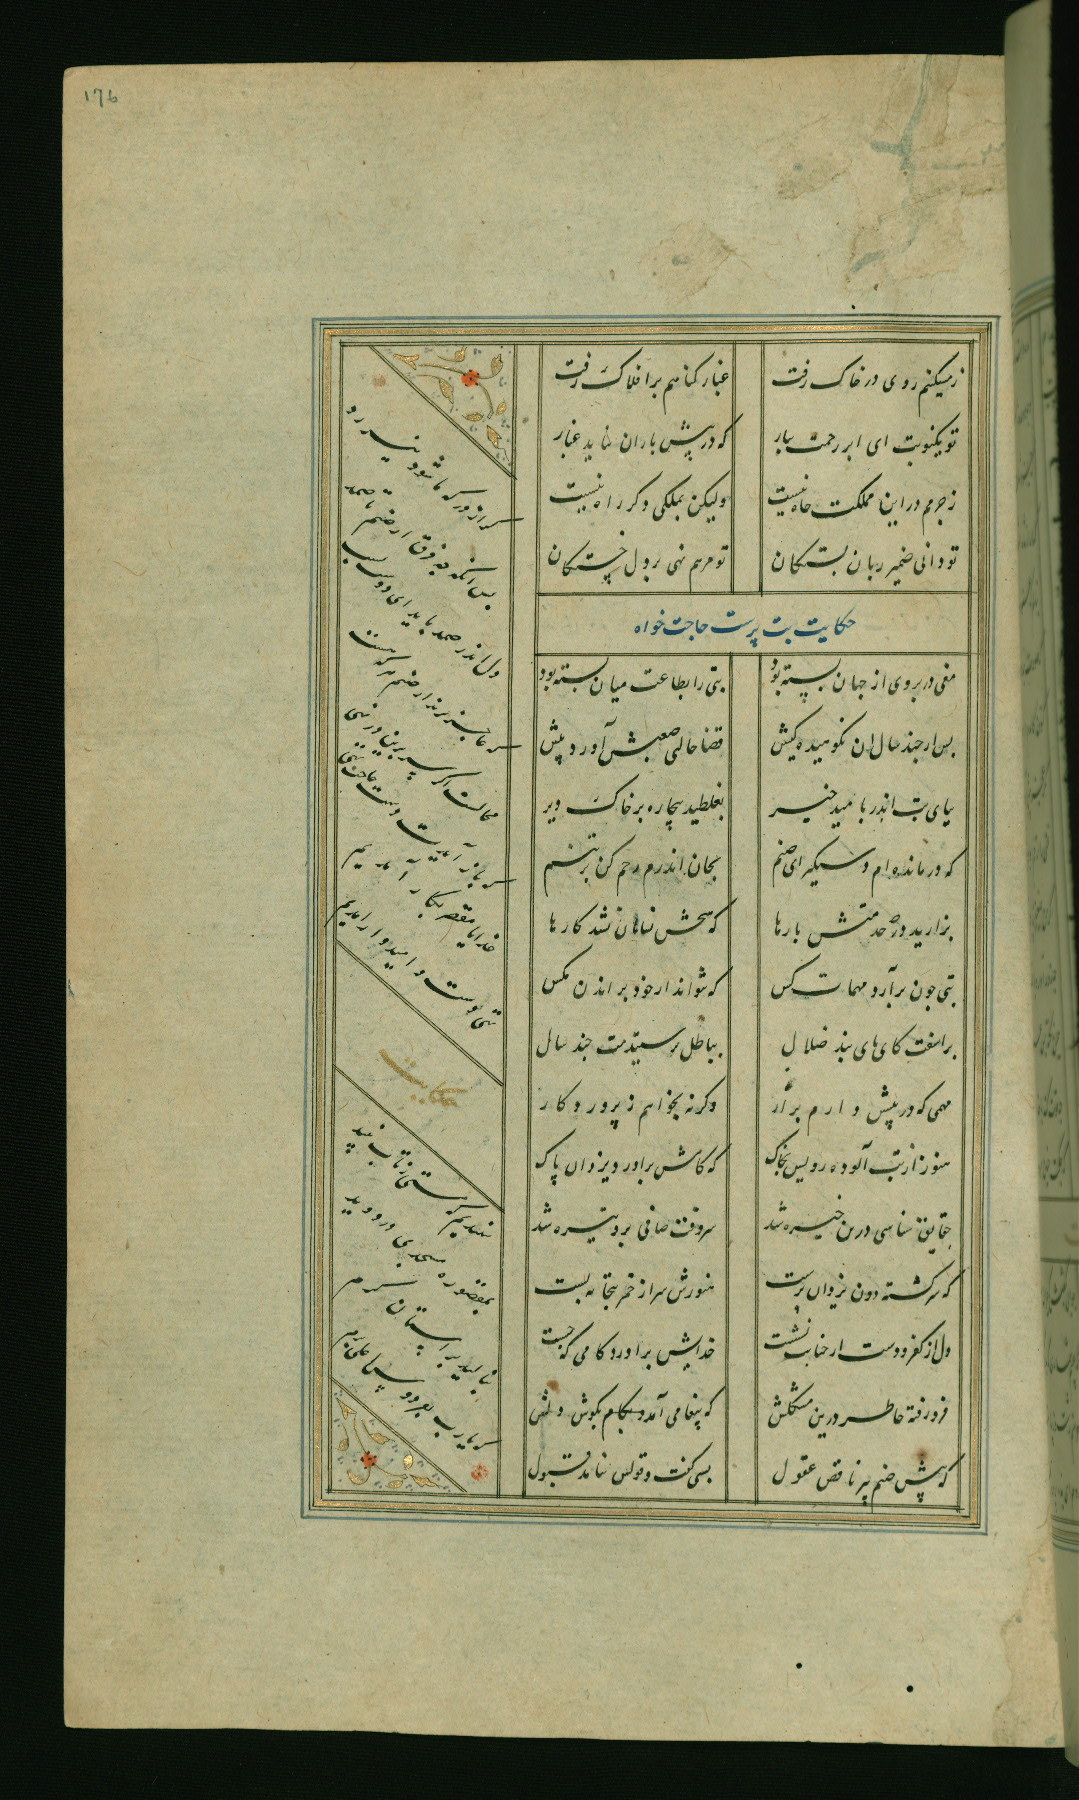 ۱۷۶
زمیکنم روی در خاک رفت
غبار کناهم بر افلاک رفت
تو یکنوبت ای ابر رحمت ببار
که در پیش باران نیاید غبار
ز جرمم در این مملکت جاه نیست
ولیکن بملکی دکر راه نیست
تو دانی ضمیر زبان بستکان
تو مرهم نهی بر دل خستکان
حکایت بت پرست حاجت خواه
مغی در بروی از جهان بسته بود
بتی را بطاعت میان بسته بود
پس از چند سال ان نکوهیده کیش
قضا حالی صعبش آورد پیش
بپای بت اندر بامید خیر
بغلطید بیچاره بر خاک دیر
که درمانده ام دستکیر ای صنم
بجان اندرم رحم کن بر تنم
بزارید در خدمتش بارها
که هیچش بسامان نشد کارها
بتی چون برآرد مهمات کس
که نتواند از خود براندن مکس
برآشفت کای پای بند ضلال
بباطل پرستیدمت چند سال
مهمی که در پیش دارم برآر
وکرنه بخواهم ز پروردکار
هنوز از بت آلوده رویش بخاک
که کامش براورد یزدان پاک
حقایق شناسی درین خیره شد
سر وقت صافی برو تیره شد
که سرکشته دون یزدان پرست
هنوزش سر از خمر بتخانه مست
دل از کفر و دست از خیانت نشست
خدایش براورد کامی که جست
فرو رفته خاطر درین مشکلش
که پیغامی آمد بکوش دلش
که پیش صنم پیر ناقص عقول
بسی کفت و قولش نیامد قبول
کر از درکه ما شود نیز رد
پس آنکه چه فرق از صنم تا صمد
دل اندر صمد باید ای دوست بست
که عاجزترند از صنم هر که هست
محالست اکر سر برین در نهی
که باز آیدت دست حاجت تهی
خدایا مقصر بکار آمدیم
تهی دست و امیدوار آمدیم
حکایت
شنیدم که مستی ز تاب نبید
بمقصوره مسجدی در دوید
بنالید بر آستان کرم
که یا رب بفردوس اعلی برم